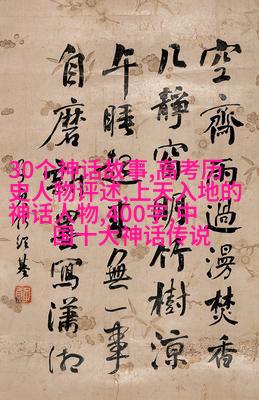 30个神话故事,高考历
史人物评述,上天入地的
神话人物,400字,中
国十大神话传说
空齋雨過漫焚香
几靜窗明竹樹涼
午睡起來無一事
自磨寫瀟湘